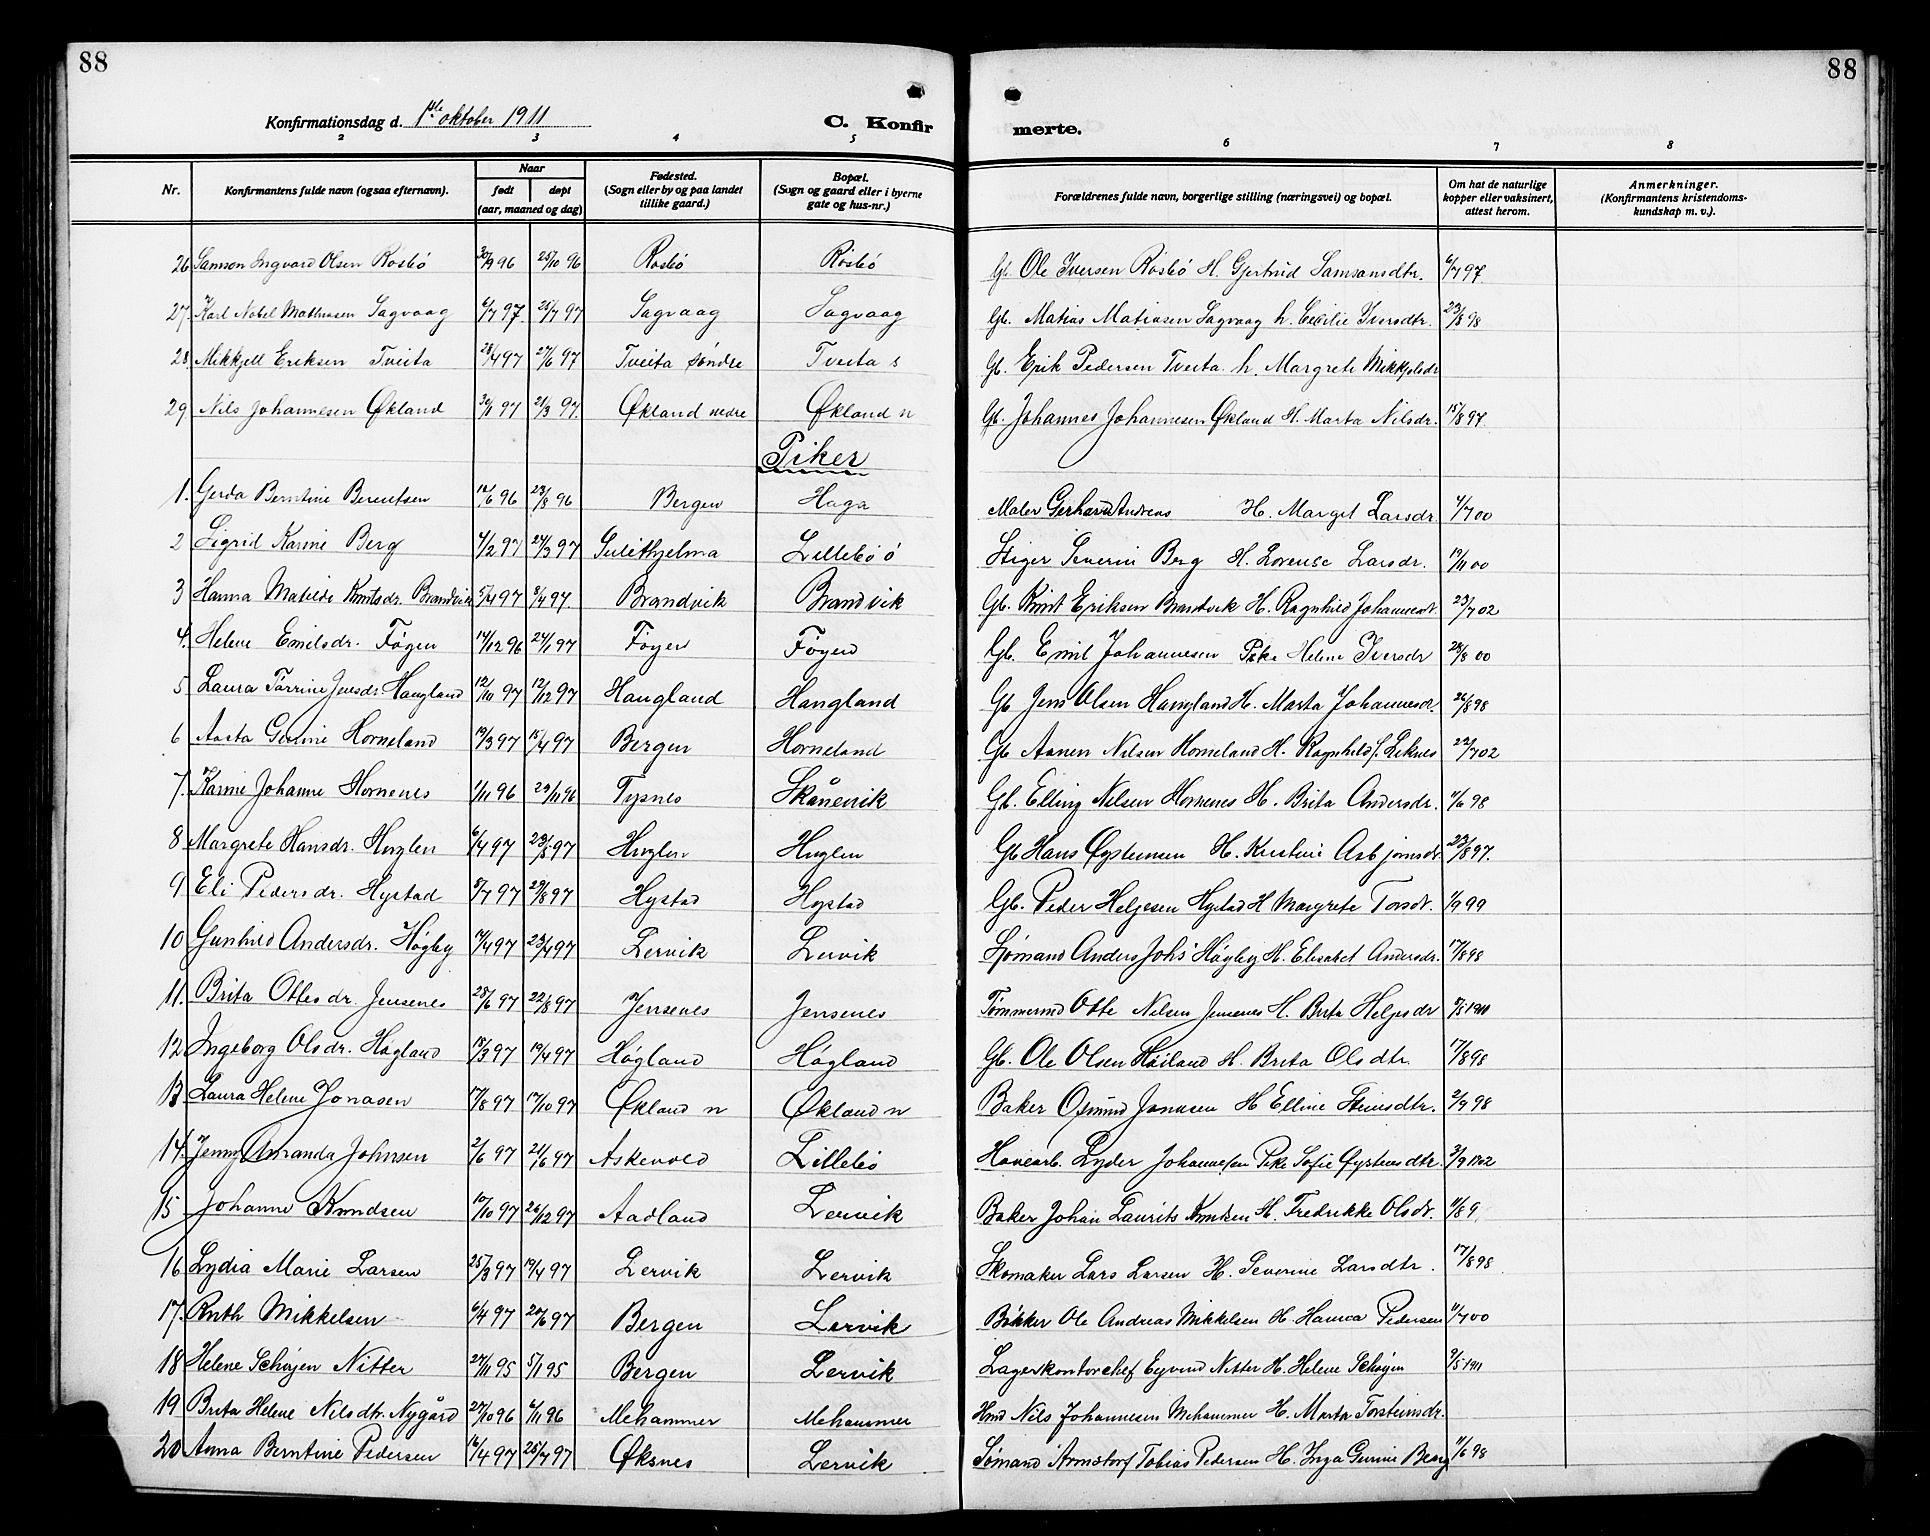 88
88
Konfirmationsdag d. 1ste oktober 1911
C. Konfir merte.
2 3 4 5 6 7 8
Nr. Konfirmantens fulde navn (ogsaa efternavn). Naar født døpt (aar, maaned og dag) Fødested. (Sogn eller by og paa landet tillike gaard.) Bopæl. (Sogn og gaard eller i byerne gate og hus-nr.) Forældrenes fulde navn, borgerlige stilling (næringsvei) og bopæl. Om hat de naturlige kopper eller vaksinert, attest herom. Anmerkninger. (Konfirmantens kristendoms-kundskap m. v.).
26 Samson Ingvard Olsen Rosbø 30/9 96 25/10 96 Rosbø Rosbø Gb. Ole Iversen Rosbø H. Gjertrud Samsonsdtr. 6/7 97
27. Karl Nobel Mathiasen Sagvaag 6/7 97. 25/7 97 Sagvaag Sagvaag Gb. Matias Matiasen Sagvaag h. Cecilie Iversdtr. 23/8 98
28 Mikkjell Eriksen Tveita 28/4 97 27/6 97 Tveita søndre Tveita s Gb. Erik Pedersen Tveita. h. Margrete Mikkjelsdr
29 Nils Johannesen Økland 30/1 97 21/3 97. Økland nedre Økland n Gb. Johannes Johannesen Økland H. Marta Nilsdr. 15/8 97.
Piker
1. Gerda Berntine Berentsen 12/6 96 23/8 96 Bergen Haga Maler Gerhard Andreas H. Marget Larsdr. 4/7 00
2 Sigrid Karine Berg 4/2 97 24/3 97 Sulithjelma Lillebø ö Stiger Severin Berg H. Lorense Larsdr. 19/11 00
3 Hanna Matilde Knutsdr. Brandvik 5/4 97 8/4 97. Brandvik Brandvik Gb. Knut Eriksen Brandvik H. Ragnhild Johannesdr 23/7 02
4. Helene Emilsdr. Føgen 14/12 96 24/1 97 Føyen Føyen Gb. Emil Johannesen Pike Helene Iversdr 28/8 00
5 Laura Torrine Jensdr. Haugland 12/10 97 12/12 97 Haugland Haugland Gb Jens Olsen Haugland H. Marta Johannesdr. 26/8 98
6 Aasta Gurine Horneland 19/3 97 15/4 97 Bergen Horneland Gb Aanen Nilsen Horneland H. Ragnhild f. Leknes 22/7 02
7. Karine Johanne Hornenes 1/11 96 29/11 96 Tysnes Skånevik Gb. Elling Nilsen Hornenes H. Brita Andersdr. 11/6 98
8 Margrete Hansdr. Huglen 6/4 97 23/5 97 Huglen Huglen Gb Hans Øysteinsen H. Kristine Asbjørnsdr 23/8 97.
9 Eli Pedersdr. Hystad 5/7 97 29/8 97 Hystad Hystad Gb. Peder Helgesen Hystad H Margrete Torsdr. 1/9 99
10 Gunhild Andersdr. Høgley 14/4 97 23/4 97 Lervik Lervik Sjømand Anders Johs Høgley H. Elisabet Andersdr. 17/8 98
11. Brita Ottesdr. Jensenes 28/6 97 22/8 97 Jensenes Jensenes Tømmermd Otte Nilsen Jensenes H. Brita Helgesdr 9/5 1911
12 Ingeborg Olsdr. Høgland 12/3 97 19/4 97 Høgland Høgland Gb. Ole Olsen Høiland H. Brita Olsdtr. 17/8 98
13 Laura Helene Jonasen 17/8 97 17/10 97 Økland n Økland n Baker Osmund Jonasen H Elline Steinsdtr. 2/9 98
14. Jenny Amanda Johnsen 2/6 97 21/6 97 Askevold Lillebø Havearb. Lyder Johannesen Pike Sofie Øystensdtr. 3/9 1902
15 Johanne Knudsen 10/10 97 26/12 97 Aadland Lervik Baker Johan Laurits Knutsen H. Fredrikke Olsdr. 11/8 9.
16 Lydia Marie Larsen 25/3 97 19/4 97 Lervik Lervik Skomaker Lars Larsen H. Severine Larsdtr. 17/8 98
17. Ruth Mikkelsen 6/4 97 20/6 97 Bergen Lervik Bøkker Ole Andreas Mikkelsen H. Hanna Pedersen 11/7 00
18 Helene Schøyen Nitter 27/11 95 5/1 95 Bergen Lervik Lagerkontorchef Eyvind Nitter H. Helene Schøyen 9/5 1911
19 Brita Helene Nilsdtr. Nygård 27/10 96 4/11 96 Mehammer Mehammer Hmd Nils Johannesen Mehammer H. Marta Torsteinsdr.
20 Anna Berntine Pedersen 16/4 97 25/7 97 Øksnes Lervik Sømand Armstorf Tobias Pedersen H. Inga Gurine Berg 11/6 98